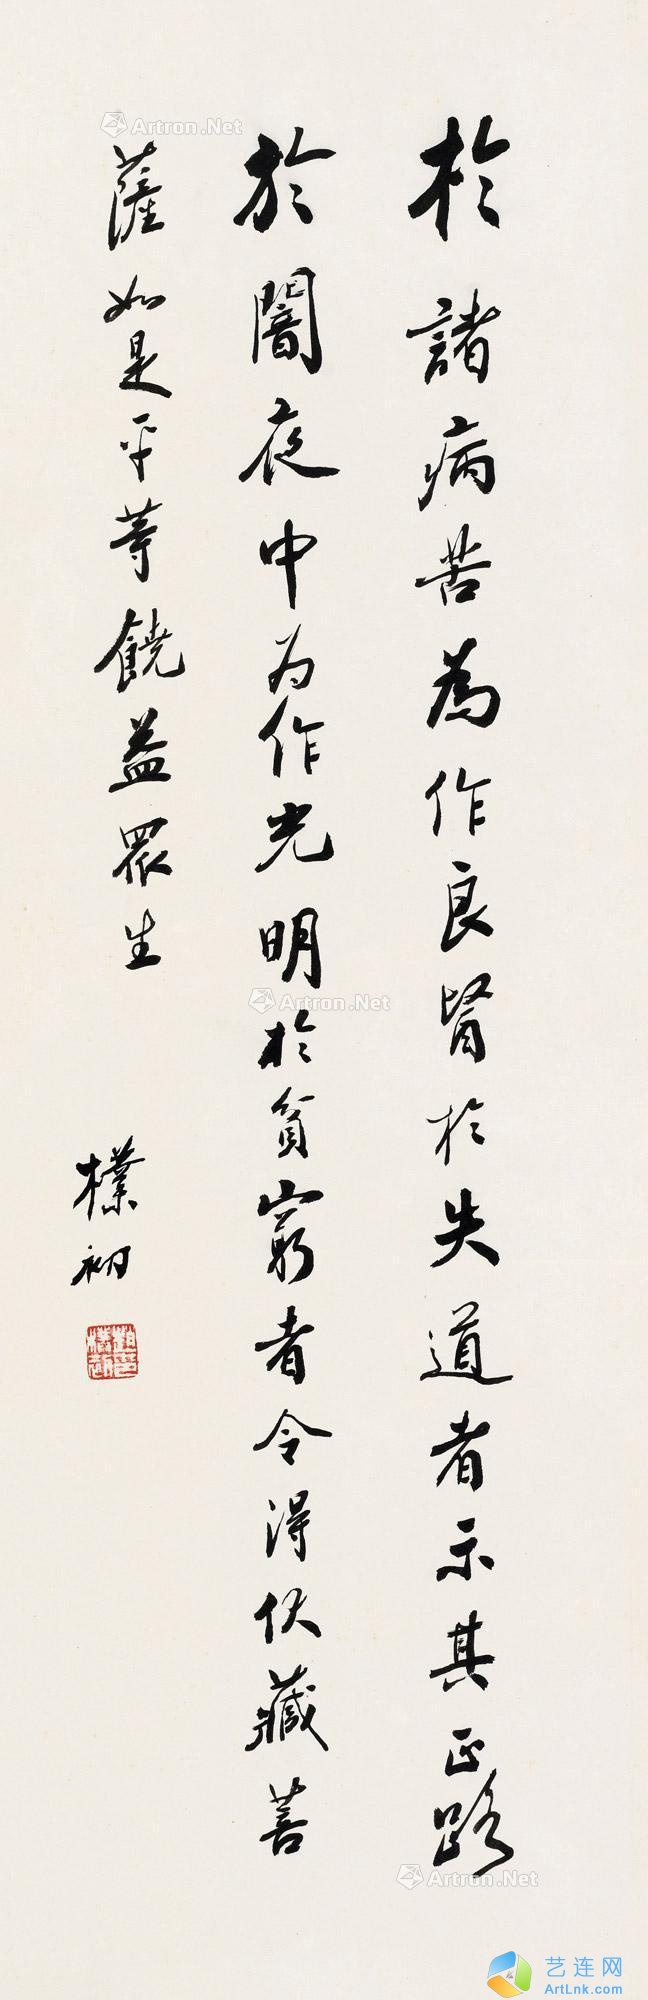 於諸病苦為作良醫於失道者示其正路
於闇夜中为作光明於貧窮者令得伏藏菩
薩如是平等饒益眾生
樸初
趙樸初印
Artron.Net
Artron.Net
Artron.Net
艺连网
ArtLnk.com